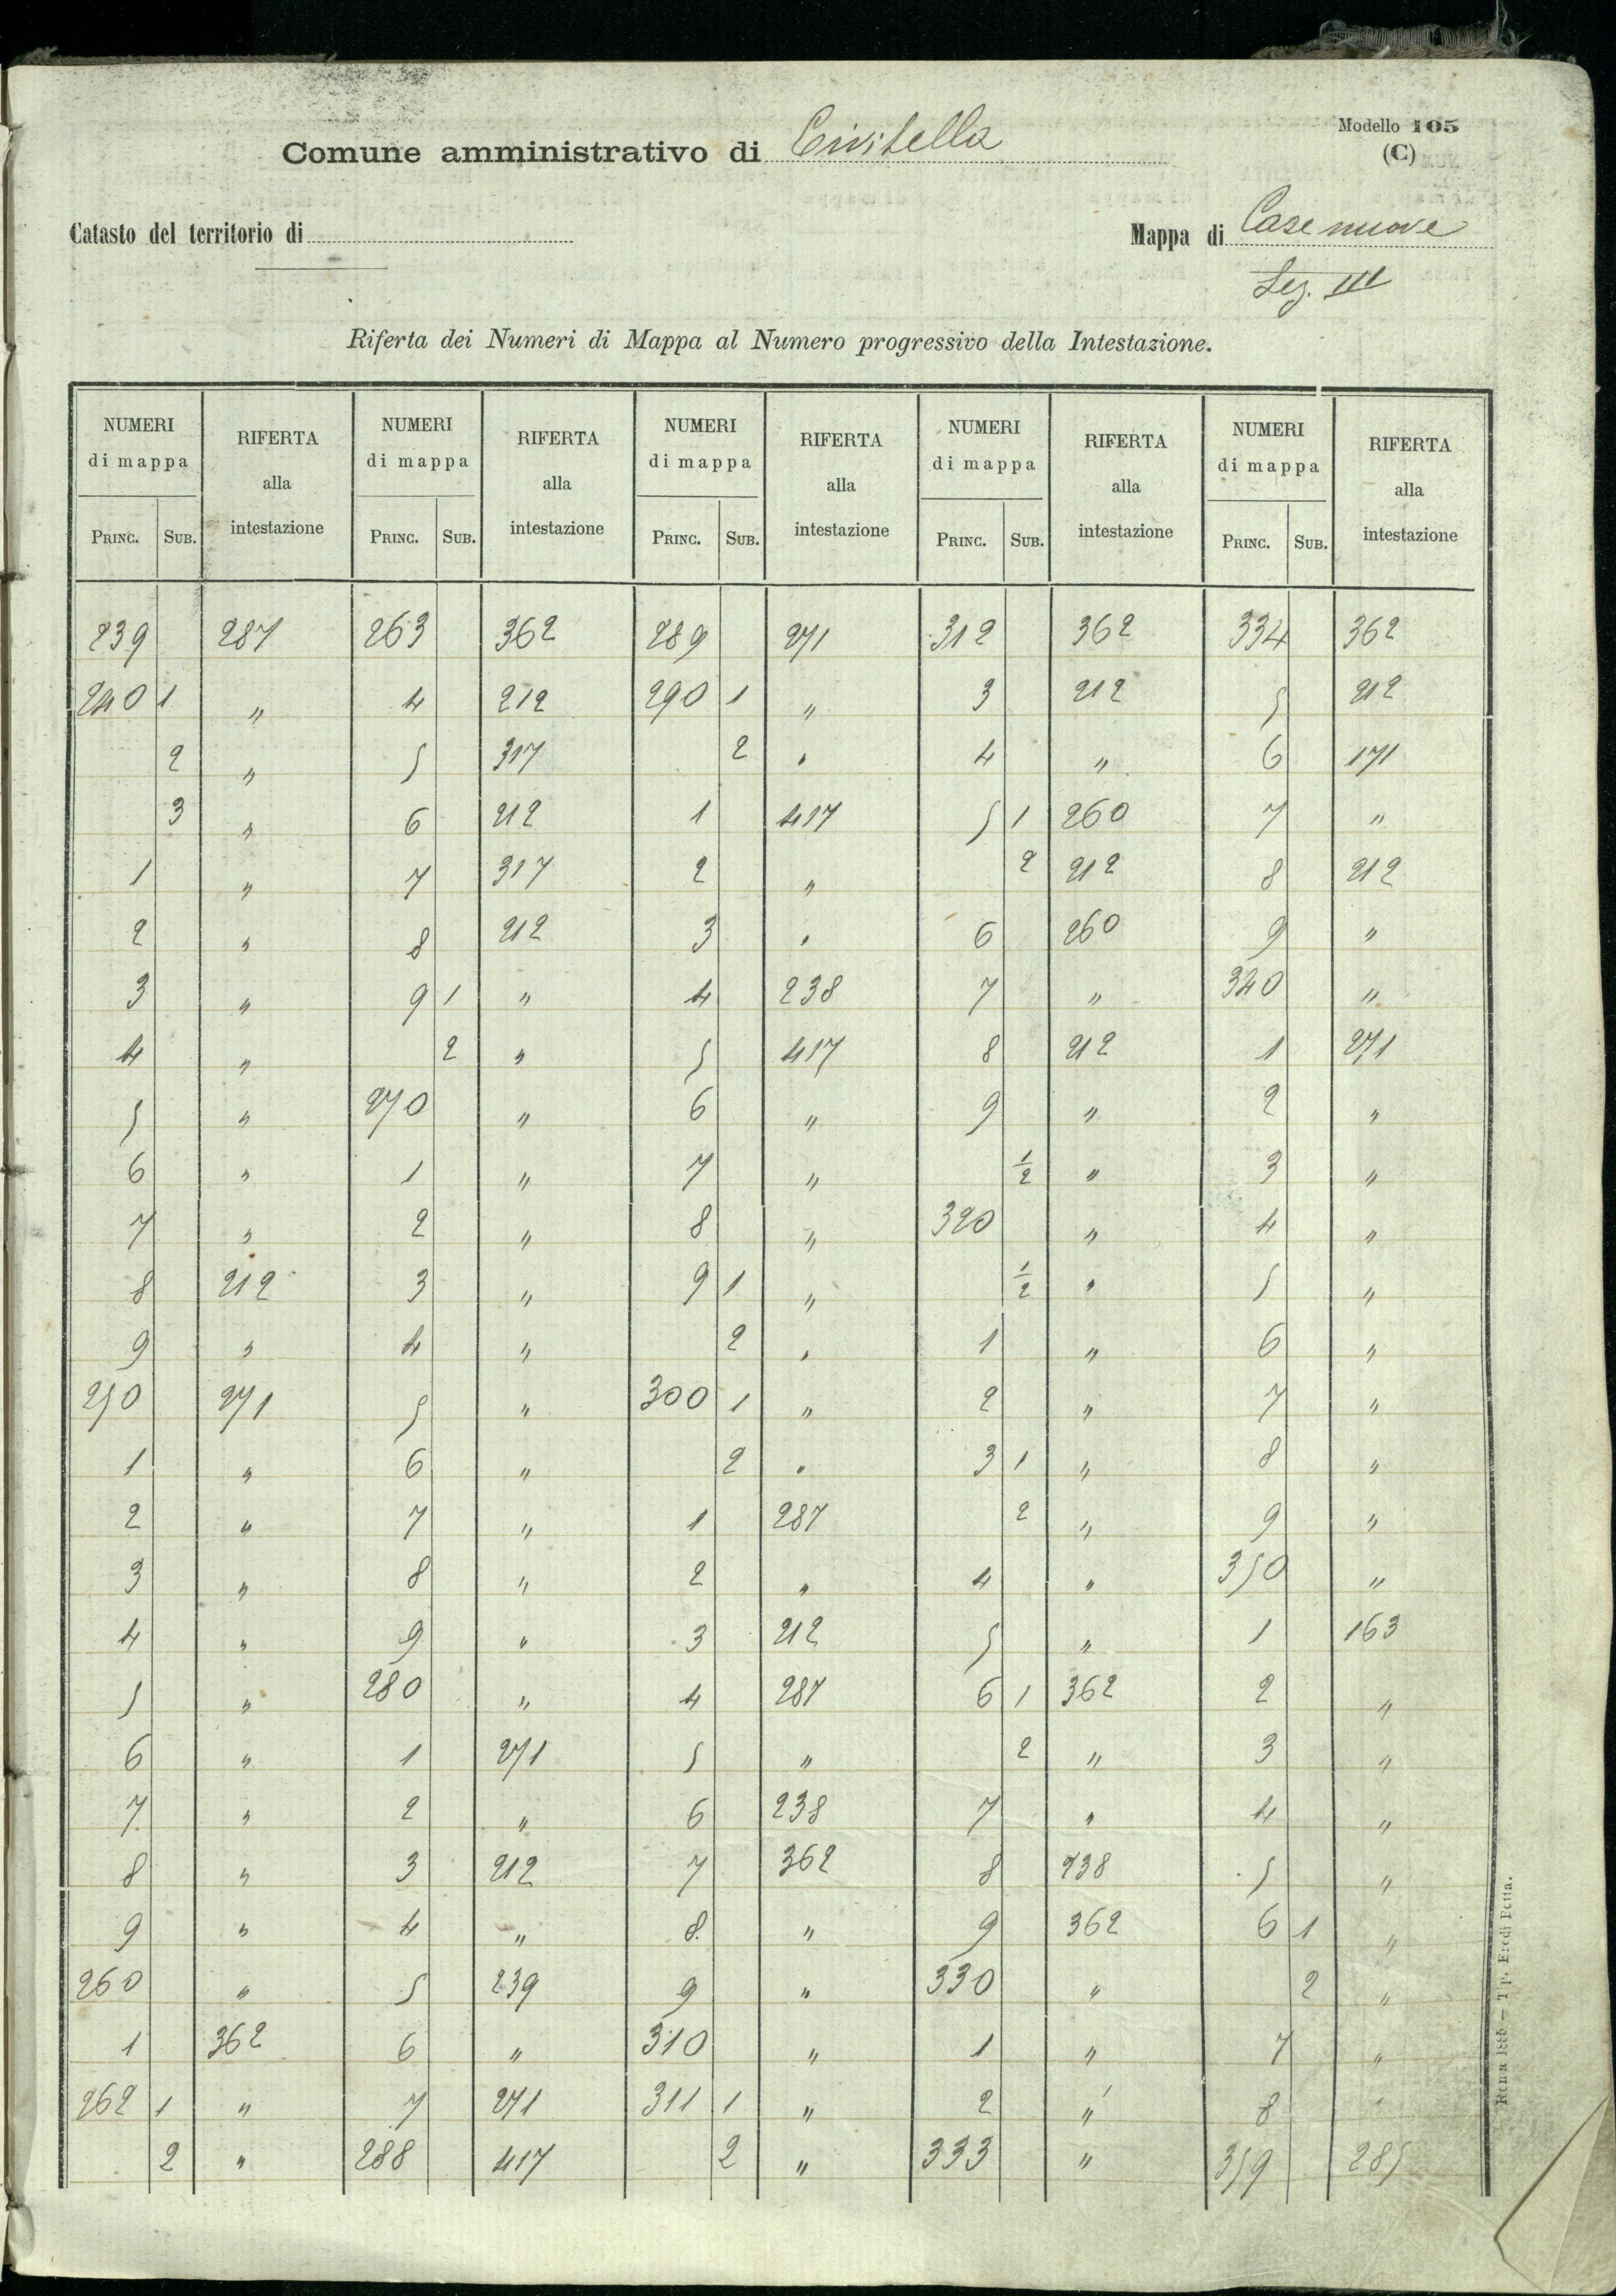 Modello 105
(C)
Comune amministrativo di Civitella
Catasto del territorio di
Mappa di Case nuove
Sez. III
Riferta dei Numeri di Mappa al Numero progressivo della Intestazione.
NUMERI di mappa RIFERTA alla intestazione NUMERI di mappa RIFERTA alla intestazione NUMERI di mappa RIFERTA alla intestazione NUMERI di mappa RIFERTA alla intestazione NUMERI di mappa RIFERTA alla intestazione
PRINC. SUB. PRINC. SUB. PRINC. SUB. PRINC. SUB. PRINC. SUB.
239 287 263 362 289 271 312 362 334 362
240 1 " 4 212 290 1 " 3 212 5 212
2 " 5 317 2 " 4 " 6 171
3 " 6 212 1 417 5 1 260 7 "
1 " 7 317 2 " 2 212 8 212
2 " 8 212 3 " 6 260 9 "
3 " 9 1 " 4 238 7 " 340 "
4 " 2 " 5 417 8 212 1 271
5 " 270 " 6 " 9 " 2 "
6 " 1 " 7 " 1/2 " 3 "
7 " 2 " 8 " 320 " 4 "
8 212 3 " 9 1 " 1/2 " 5 "
9 " 4 " 2 " 1 " 6 "
250 271 5 " 300 1 " 2 " 7 "
1 " 6 " 2 " 3 1 " 8 "
2 " 7 " 1 287 2 " 9 "
3 " 8 " 2 " 4 " 350 "
4 " 9 " 3 212 5 " 1 163
5 " 280 " 4 287 6 1 362 2 "
6 " 1 271 5 " 2 " 3 "
7 " 2 " 6 238 7 " 4 "
8 " 3 212 7 362 8 238 5 "
9 " 4 " 8 " 9 362 6 1 "
260 " 5 239 9 " 330 " 2 "
1 362 6 " 310 " 1 " 7 "
262 1 " 7 271 311 1 " 2 " 8 "
2 " 288 417 2 " 333 " 359 285
Tip. Eredi Botta.